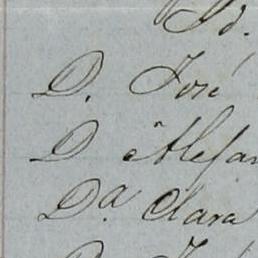 Id.
D. José
D Alejan
Dª Clara